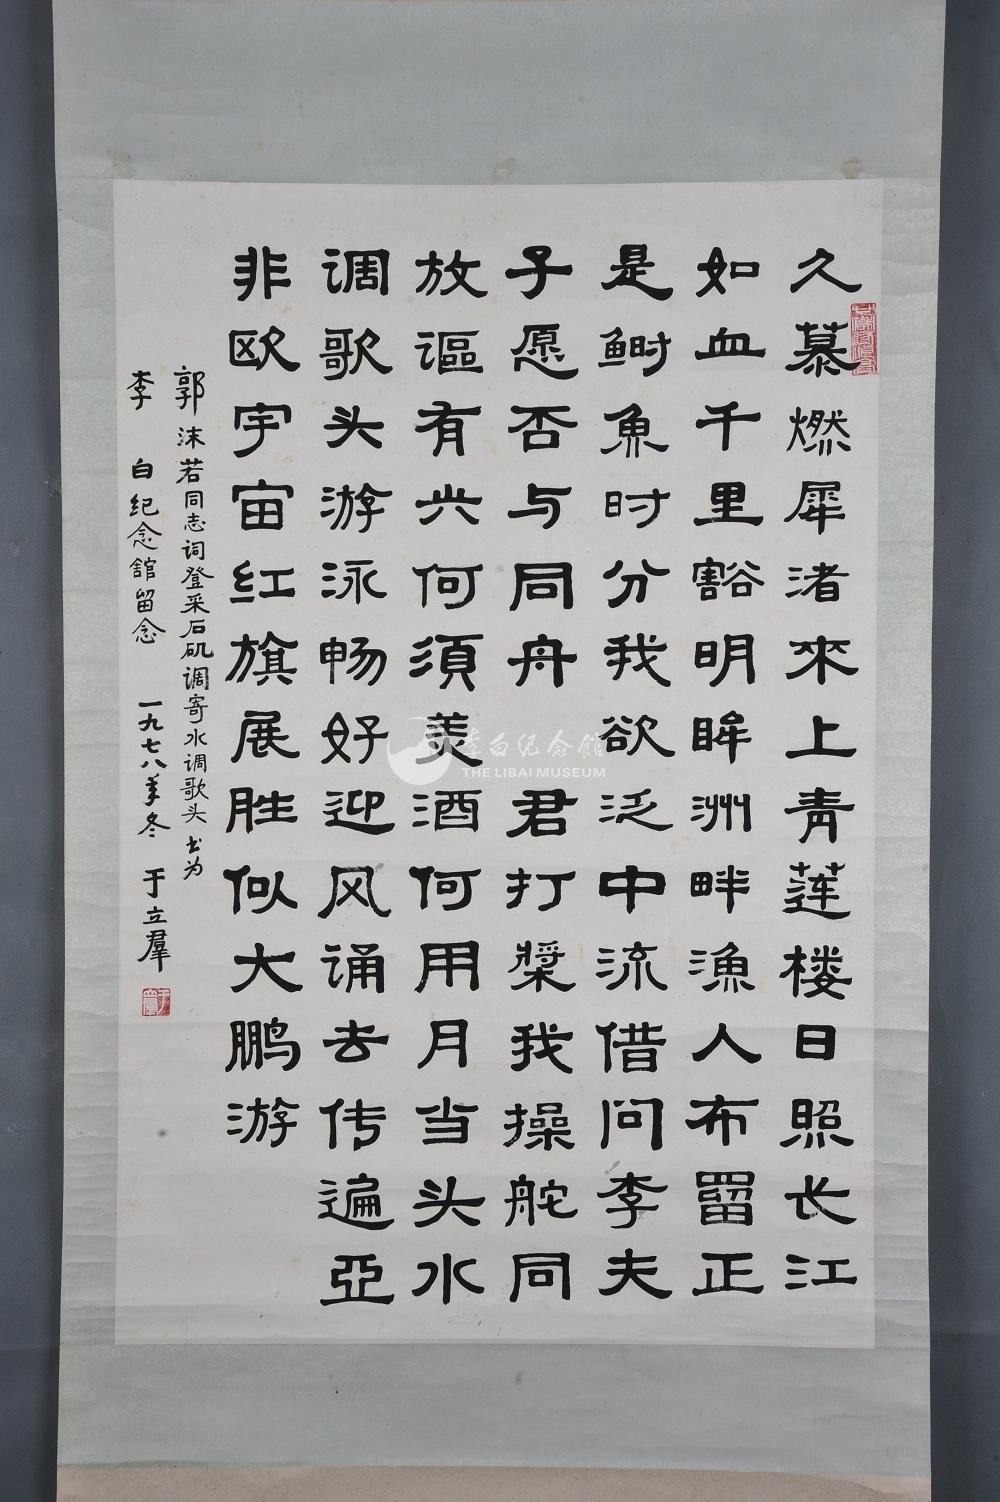 久慕燃犀渚來上青莲楼日照长江
如血千里豁明眸洲畔渔人布留正
是鲥魚时分我欲泛中流借问李夫
子愿否与同舟 君打槳我操舵同
放謳有兴何須美酒何用月当头水
调歌头游泳畅好迎风诵去传遍亞
非欧宇宙红旗展胜似大鹏游
郭沫若同志词登采石矶调寄水调歌头 书为
李白纪念馆留念 一九七八年冬 于立羣
李白纪念館
THE LIBAI MUSEUM